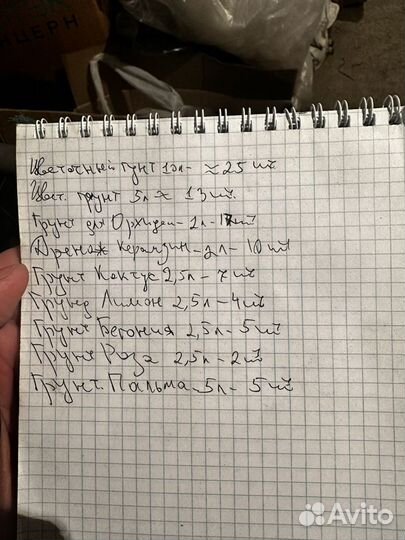 Цветочный гунт 10л - ≈ 25 шт.
Цвет. грунт 5л ≈ 13 шт.
Грунт для Орхидеи - 2л - шт
Дренаж Керамзин - 2л - 10 шт
Грунт Кактус 2,5л - 7 шт
Грунд Лимон 2,5л - 4 шт
Грунт Бегония 2,5л - 5 шт
Грунт Роза 2,5л - 2 шт
Грунт. Пальма 5л - 5 шт
Avito